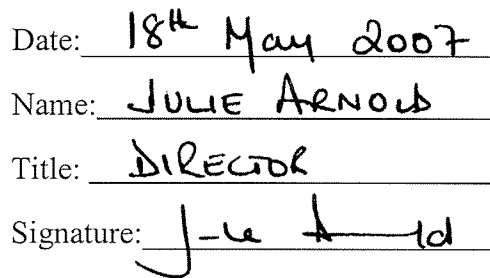 Date: 18th May 2007
Name: JULIE ARNOLD
Title: DIRECTOR
Signature: